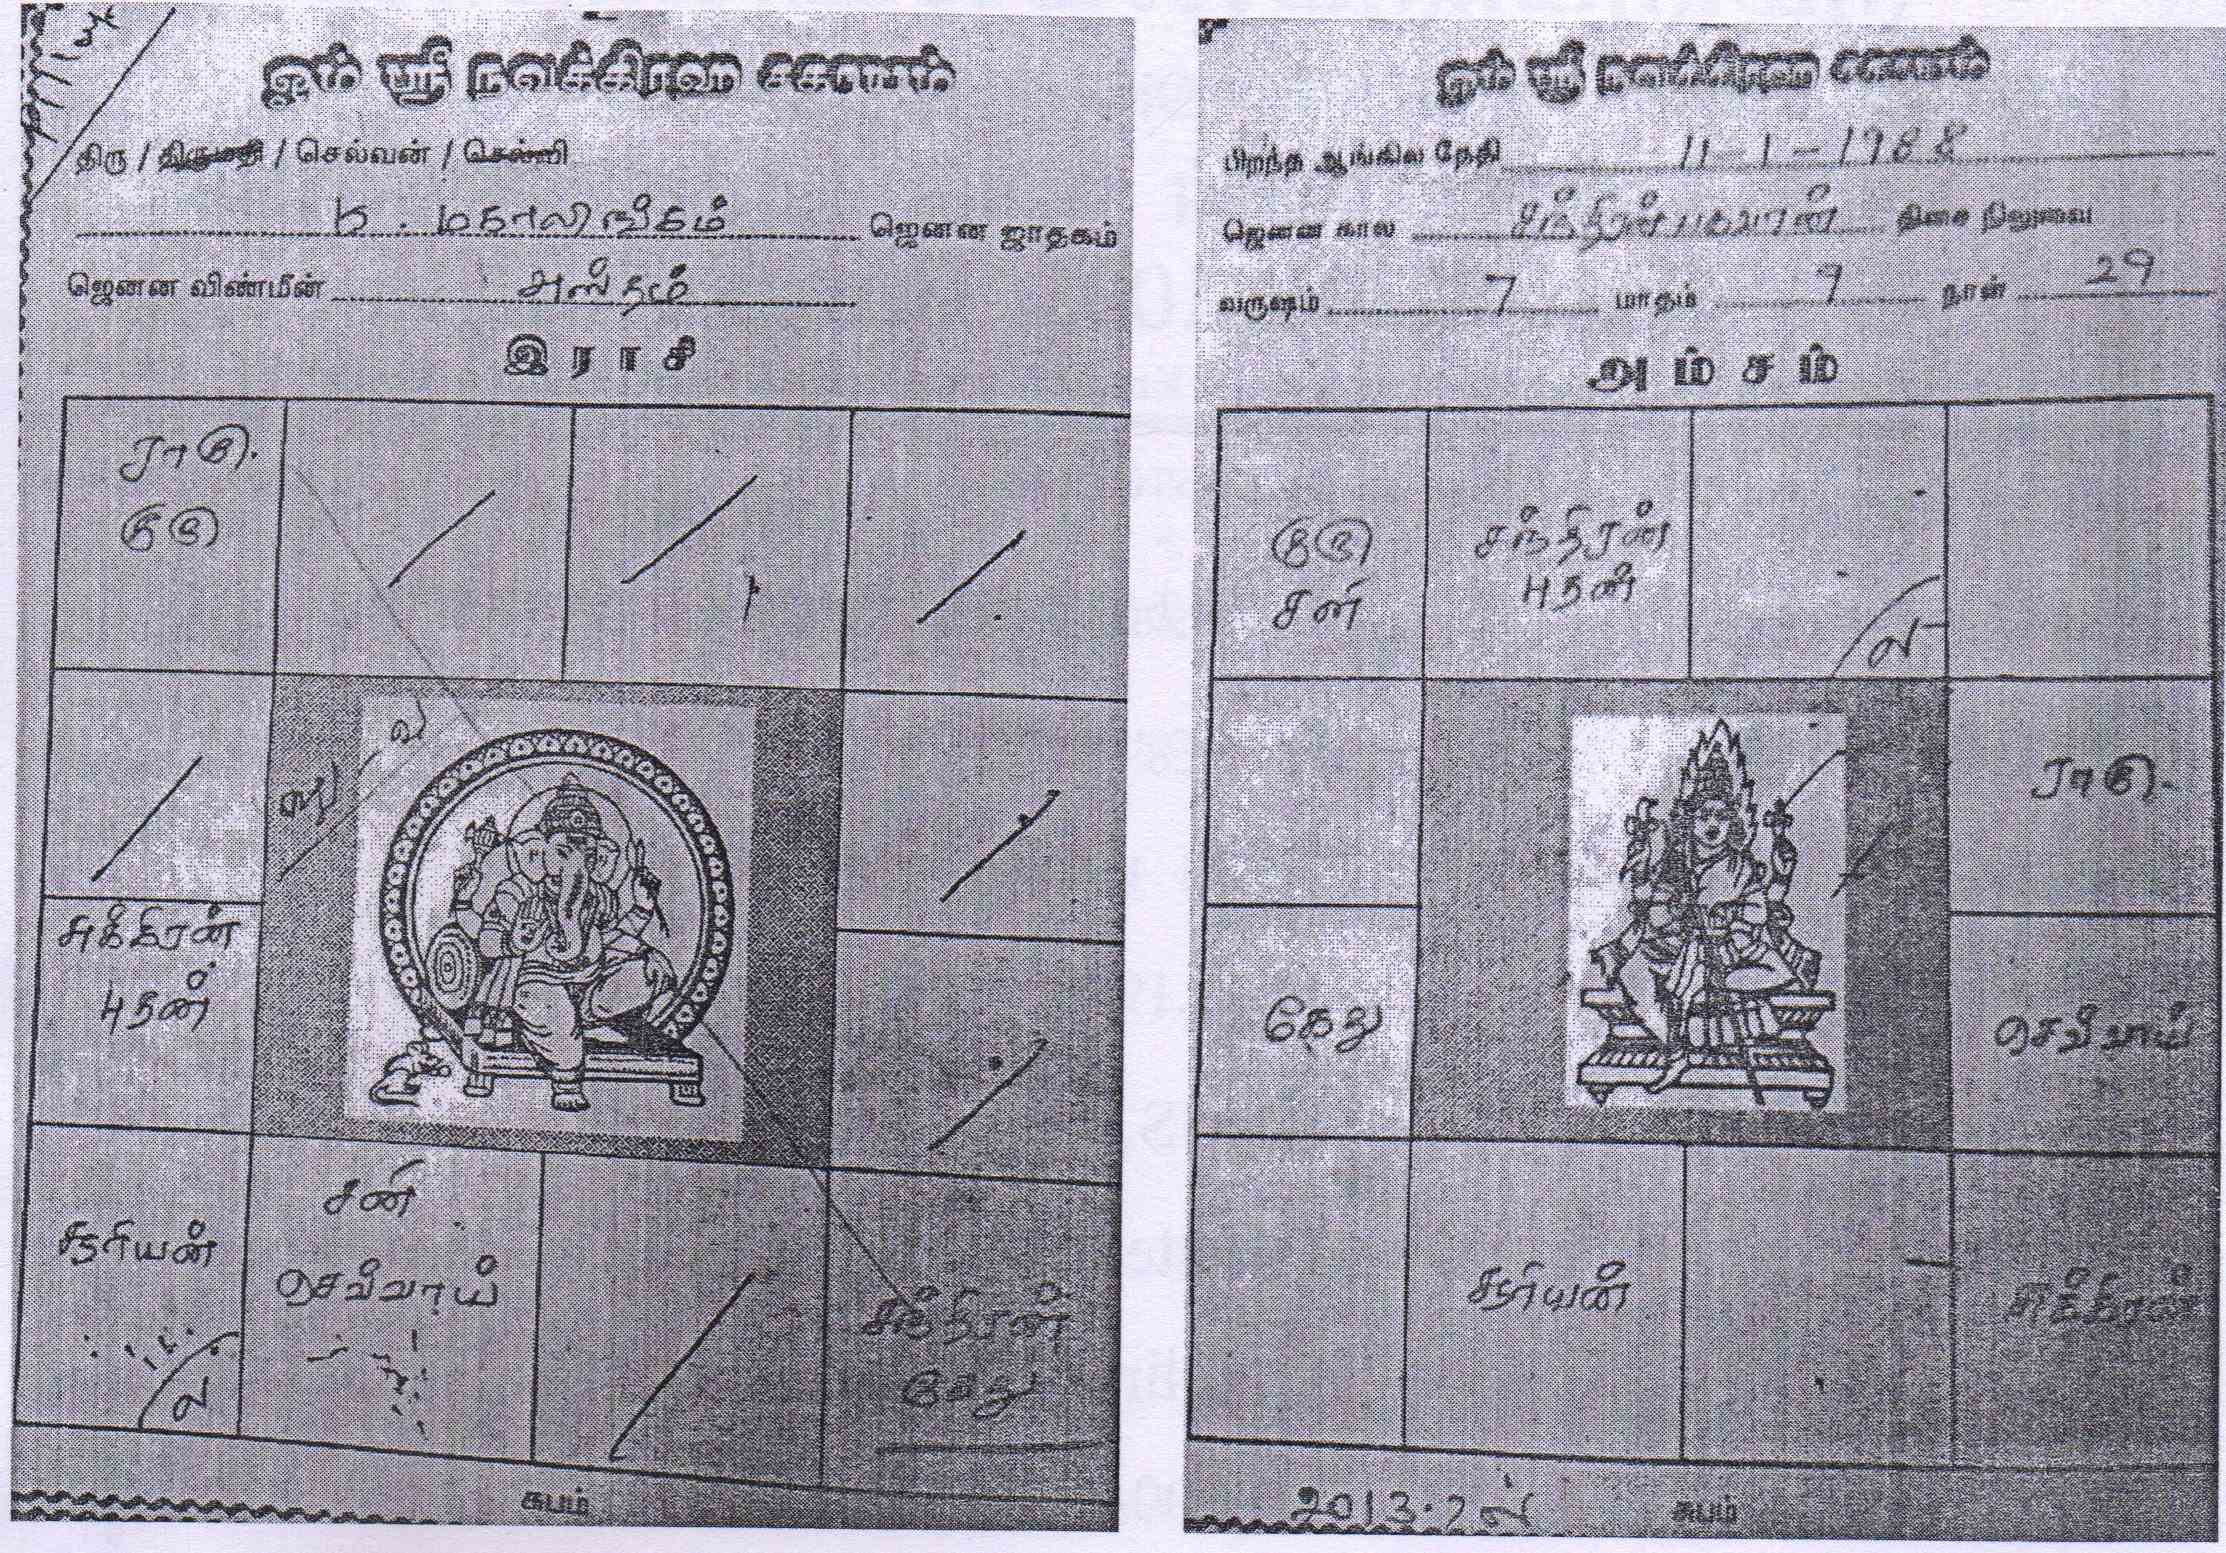 ஓம் ஸ்ரீ நவக்கிரஹ சகாயம்
திரு / திருமதி / செல்வன் / செல்வி
K. மகாலிங்கம் ஜெனன ஜாதகம்
ஜெனன விண்மீன் அஸ்தம்
இராசி
ராகு.
குரு
சுக்கிரன்
புதன்
சூரியன்
ல
சனி
செவ்வாய்
சந்திரன்
கேது
சுபம்
ஓம் ஸ்ரீ நவக்கிரஹ சகாயம்
பிறந்த ஆங்கில தேதி 11-1-1988
ஜெனன கால சந்திரன் பகவான் திசை நிலுவை
வருஷம் 7 மாதம் 9 நாள் 29
அம்சம்
குரு
சனி
சந்திரன்
புதன்
ல
ராகு.
கேது
செவ்வாய்
சூரியன்
சுக்கிரன்
சுபம்